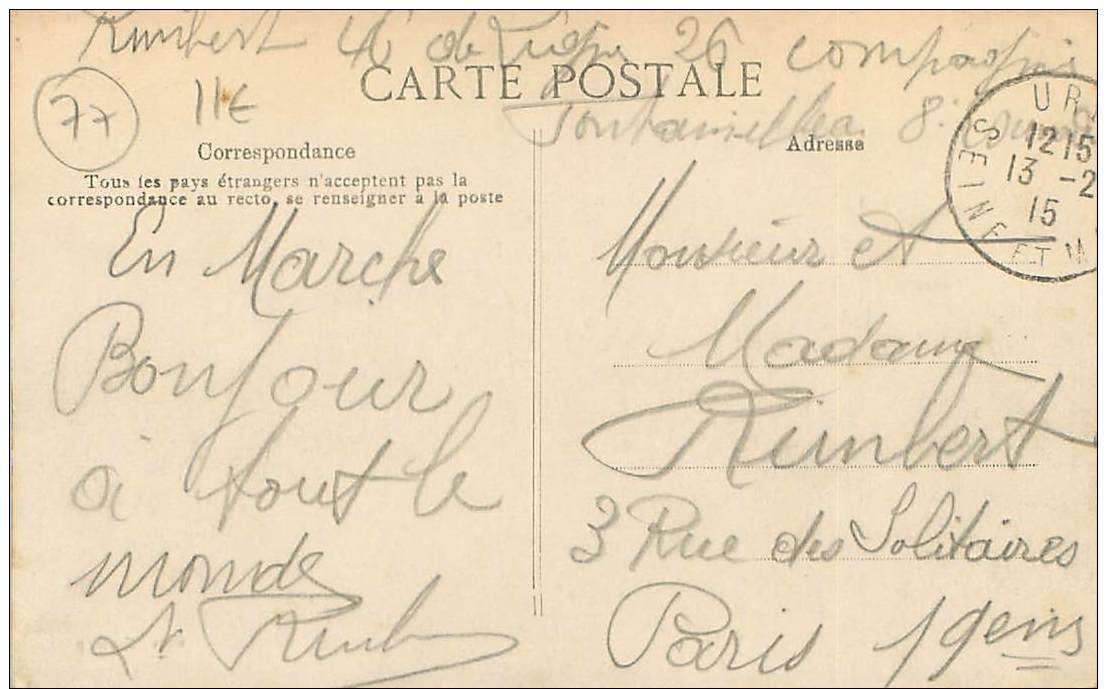 Rimbert 46 de Ligne 26 compagnie
CARTE POSTALE
77
11€
Fontainebleau
Correspondance
Adresse
Tous les pays étrangers n'acceptent pas la
correspondance au recto, se renseigner à la poste
En Marche
Bonjour
à tout le
monde
Monsieur et
Madame
Rimbert
3 Rue des Solitaires
Paris 19em
SEINE ET M
12 15
13 - 2
15